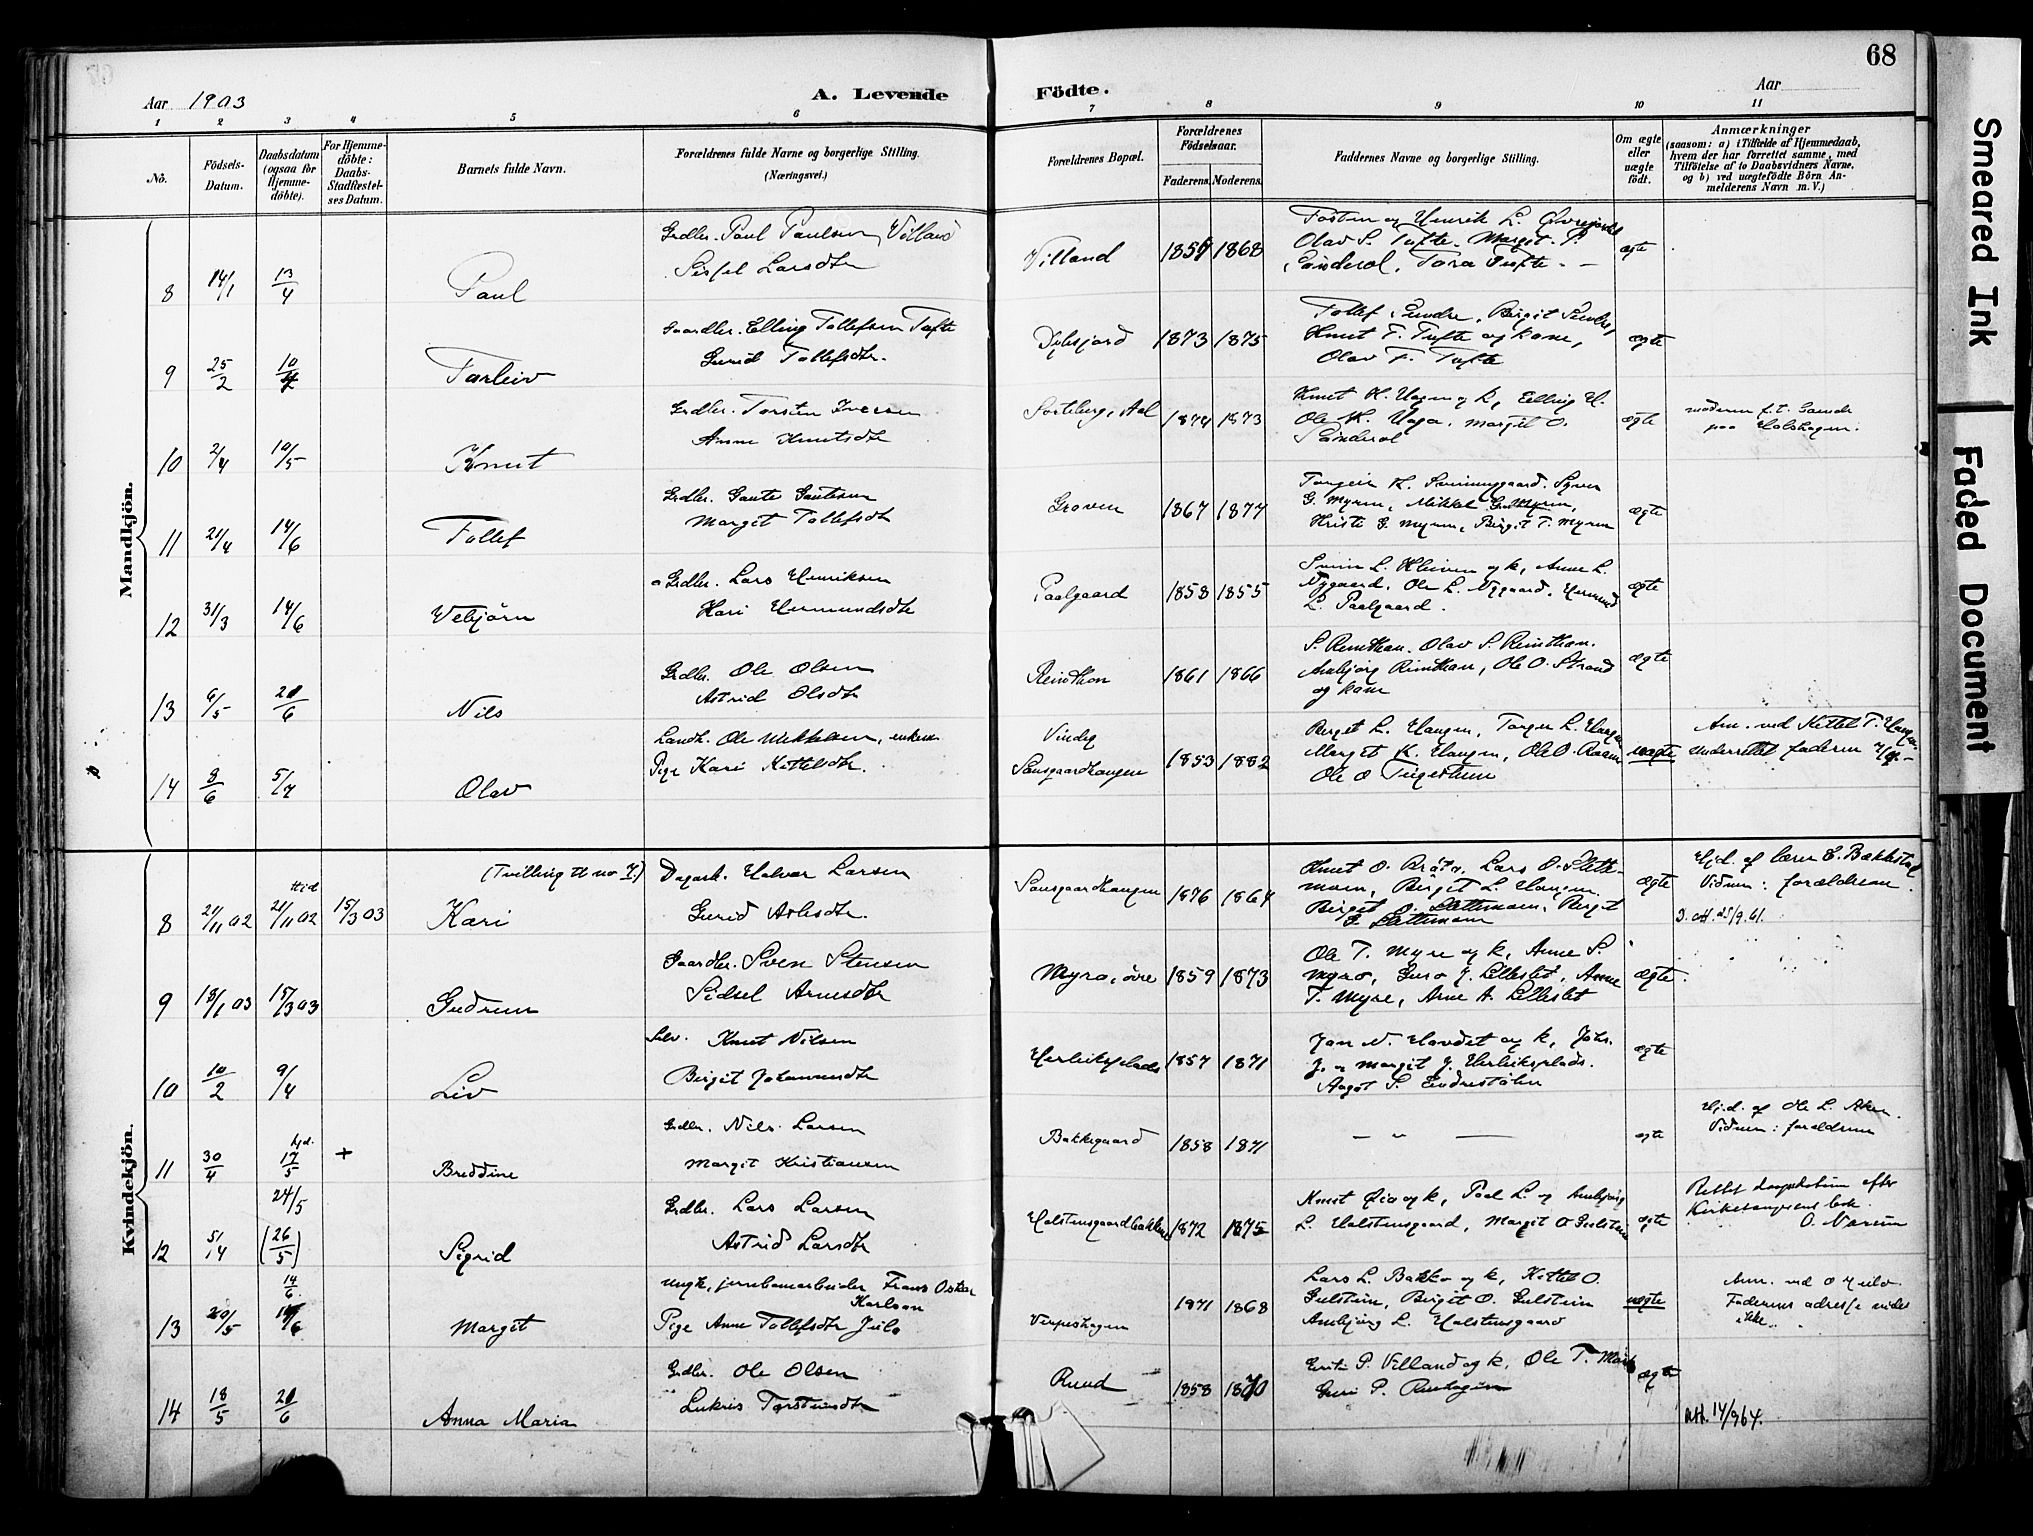 68
Aar 1903
A. Levende
Födte.
Aar
1 2 3 4 5 6 7 8 9 10 11
No.
Födsels-Datum.
Daabsdatum (ogsaa for Hjemme-döbte).
For Hjemme-döbte: Daabs-Stadfestel-ses Datum.
Barnets fulde Navn.
Forældrenes fulde Navne og borgerlige Stilling.
(Næringsvei.)
Forældrenes Bopæl.
Forældrenes Födselsaar.
Faderens. Moderens.
Faddernes Navne og borgerlige Stilling.
Om ægte eller uægte födt.
Anmærkninger
(saasom: a) i Tilfælde af Hjemmedaab, hvem der har forrettet samme, med Tilföielse af to Daabsvidners Navne, og b) ved uægtefödte Börn An-melderens Navn m. V.)
Mandkjön.
8 14/1 13/4 Paul
Grdbr. Paul Paulsen Villand
Sissel Larsdtr
Villand 1868
Olav S. Tufte. Margit P.
Sanderol, Tora Tufte. ægte
9 25/2 10/4 Torleiv
Gaardbr. Elling Tollefsen Tufte
Gurid Tollefsdtr.
1873 1875
Tollef Sundre, Birgit Sundre,
Knut T. Tufte og kone,
Olav T. Tufte ægte
10 2/4 10/5 Knut
Grdbr. Torsten Iversen
Anne Knutsdtr
Sorteberg, Aal 1874 1873
Knut K. Uagen og k, Elling H.
Ole K. Uaga, Margit O.
Sanderol ægte
11 21/4 14/6 Tollef
Grdbr. Gaute Gautesen
Margit Tollefsdt
Groven 1867 1877
G. Myren, Mikkel G. Myren,
Kristi G. Myren, Birgit T. Myren ægte
12 31/3 14/6 Vebjørn
Grdbr. Lars Henriksen
Kari Hermundsdtr
Paalgaard 1858 1855
Svein L. Kleiven og k, Anne L.
Nygaard, Ole L. Nygaard, Hermund
L. Paalgaard. ægte
13 6/5 21/6 Nils
Grdbr. Ole Olsen
Astrid Olsdtr
Reinthon 1861 1866
S. Reinthon. Olav S. Reinthon.
Ambjørg Reinthon, Ole O. Strand
og kone ægte
14 8/6 5/7 Olav
Landh. Ole Mikkelsen, enkem.
Pige Kari Kittelsdtr.
Vindeg
Sansgaardhaugen 1853 1882
Birget L. Haugen, Torger L. Haugen
Margit K. Haugen, Ole O. Raaen
Ole O uægte
Anm. ved Kittel T. Haugen
underrettet faderen
Kvindekjön.
8 21/11 02 21/11 02 15/3 03 Kari
(Tvilling til no 7.)
Dagarb. Halvor Larsen
Gurid Aslesdtr.
Sansgaardhaugen 1876 1864
Knut O. Bråta, Lars O. Slette-
moen, Birgit L. Haugen
Birgit O. Slettemoen, Birgit
G. Slettemoen ægte
Hjd. af lærer E. Bækkestad
Vidner: forældrene.
D. att. 25/9.61.
9 18/1 03 15/3 03 Gudrun
Gaardbr. Sven Stensen
Sidsel Arnesdtr
Myro, øvre 1859 1873
Ole T. Myre og k, Anne S.
Myro, Guro J. Lilleslet, Anne
T. Myre, Arne A. Lilleslet ægte.
10 10/2 9/4 Liv
Selv. Knut Nilsen
Birgit Johannesdtr
Herleiksplads 1857 1871
Jon N. Hovdet og k, Johs.
J. o Margit J. Herleiksplads.
Aagot S. Endrestølen ægte
11 30/4 hjd. 17/5 + Breddine
Grdbr. Nils Larsen
Margit Kristiansen
Bakkegaard 1858 1871
— „ — ægte
Hjd. af Ole L. Aker.
Vidner: forældrene
12 5/4 24/5 (26/5) Sigrid
Grdbr. Lars Larsen
Astrid Larsdtr
Halstensgaardbakken 1872 1875
Knut Øia og k, Paal L. og Ambjørg
L. Halstensgaard, Margit O Gulstein ægte
Rettet daapsdatum efter
Kirkesangerens bok.
O. Norum
13 20/5 14/6 Margit
Ungk, jernbanearbeider Frans Oskar
Karlson
Pige Anne Tollefsdtr Juilo
Veipeshagen 1871 1868
Lars L. Bakko og k, Kittel O.
Gulstein, Birgit O. Gulstein
Ambjørg L. Halstensgaard uægte
Faderens adresse vides
ikke.
14 18/5 21/6 Anna Maria
Grdbr. Ole Olsen
Lukris Torsteinsdtr
Ruud 1858 1870
Guri P. ægte
att. 14/9 64.
Smeared Ink
Faded Document